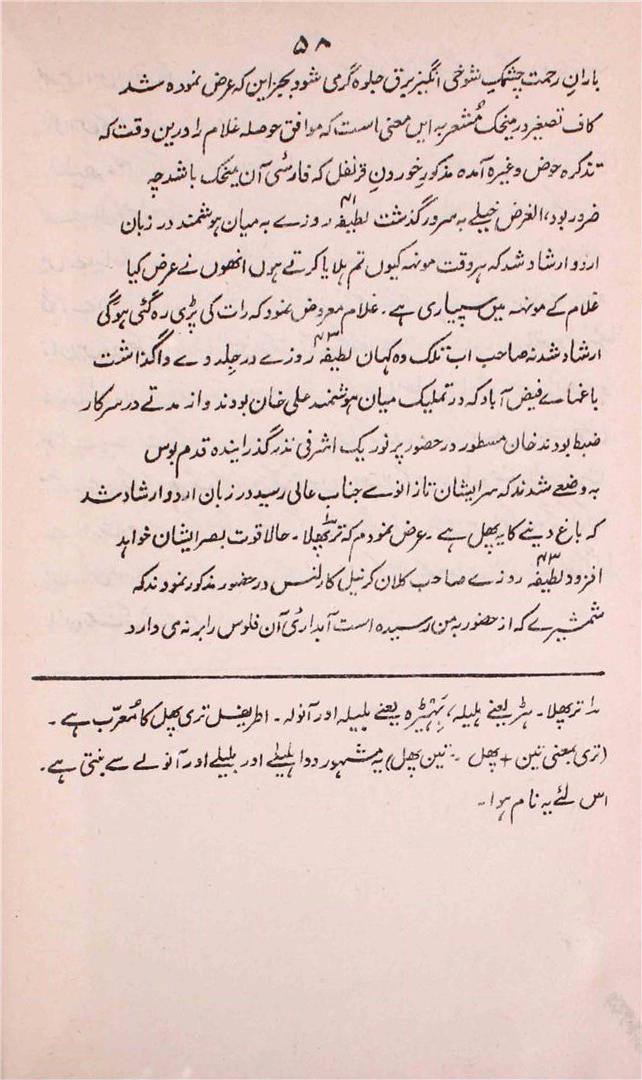 ۵۸
باران رحمت چشمک شوخی انگیز برق جلوہ گرمی شود بجز این کہ عرض نمودہ شد
کاف تصغیر در میخک مُشعر بہ ایں معنی است کہ موافق حوصلہ غلام را درین وقت کہ
تذکرہ حوض وغیرہ آمدہ مذکور خوردن قرنفل کہ فارسی آن میخک باشد چہ
ضرور بود، الغرض خیلے بہ سرور گذشت لطیفہ ۴۱ روزے بہ میان ہوشمند در زبان
اردو ارشاد شد کہ ہر وقت مونہہ کیوں تم ہلایا کرتے ہوں انھوں نے عرض کیا
غلام کے مونہہ میں سپیاری ہے۔ غلام معروض نمود کہ رات کی پڑی رہ گئی ہوگی
ارشاد شد نہ صاحب اب تلک وہ کہاں لطیفہ ۴۲ روزے در جلدوے واگذاشت
باغہاے فیض آباد کہ در تملیک میاں ہوشمند علی خان بودند و از مدتے در سرکار
ضبط بودند خان مسطور در حضور پرنور یک اشرفی نذر گذرانیدہ قدم بوس
بہ وضعے شدند کہ سر ایشان تا زانوے جناب عالی رسید در زبان اردو ارشاد شد
کہ باغ دینے کا یہ پھل ہے۔ عرض نمودم کہ ترپھلا۔ حالا قوت بصر ایشان خواہد
افزود لطیفہ ۴۳ روزے صاحب کلان کرنیل کارلنس در حضور مذکور نمودند کہ
شمشیرے کہ از حضور بہ من رسیدہ است آبداری آن فلوس را بر نمی دارد
؎۱ ترپھلا۔ ہڑ یعنے ہلیلہ، بہیڑہ یعنے بلیلہ اور آنولہ۔ اطریفل تری پھل کا مُعرّب ہے۔
(تری بمعنی تین + پھل ۔۔ تین پھل) یہ مشہور دوا ہلیلے اور بلیلے اور آنولے سے بنتی ہے۔
اس لئے یہ نام ہوا۔